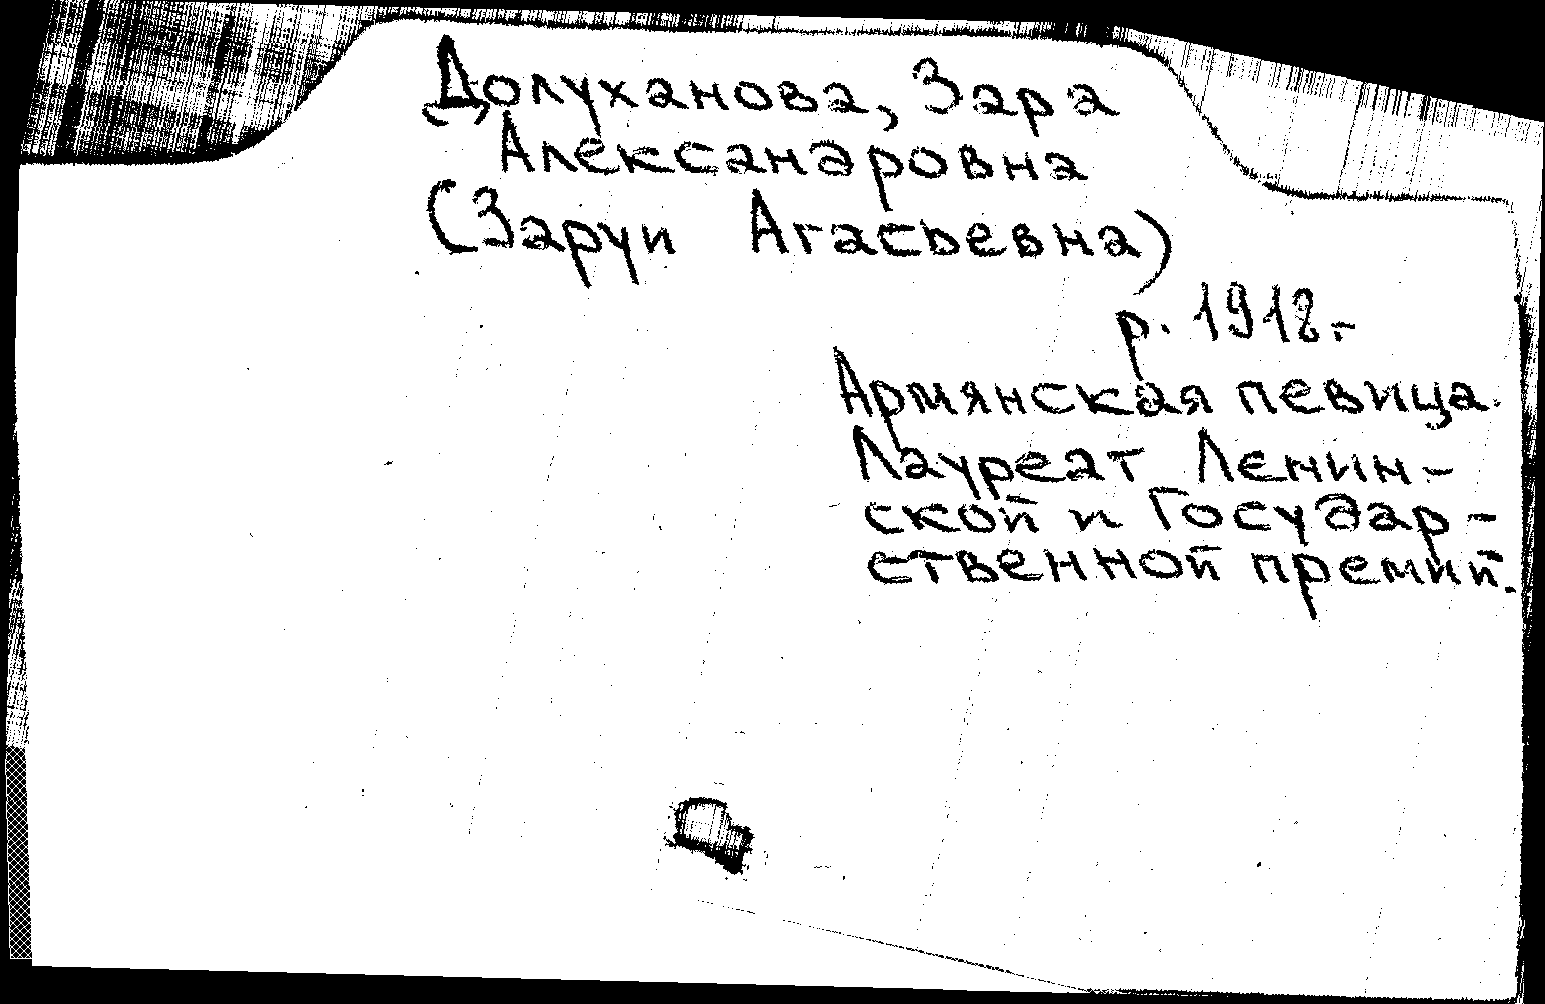 Долуханова, Зара
Александровна
(Заруи Агасьевна)
р. 1918г.
Армянская певица.
Лауреат Ленин-
ской и Государ-
ственной премий.